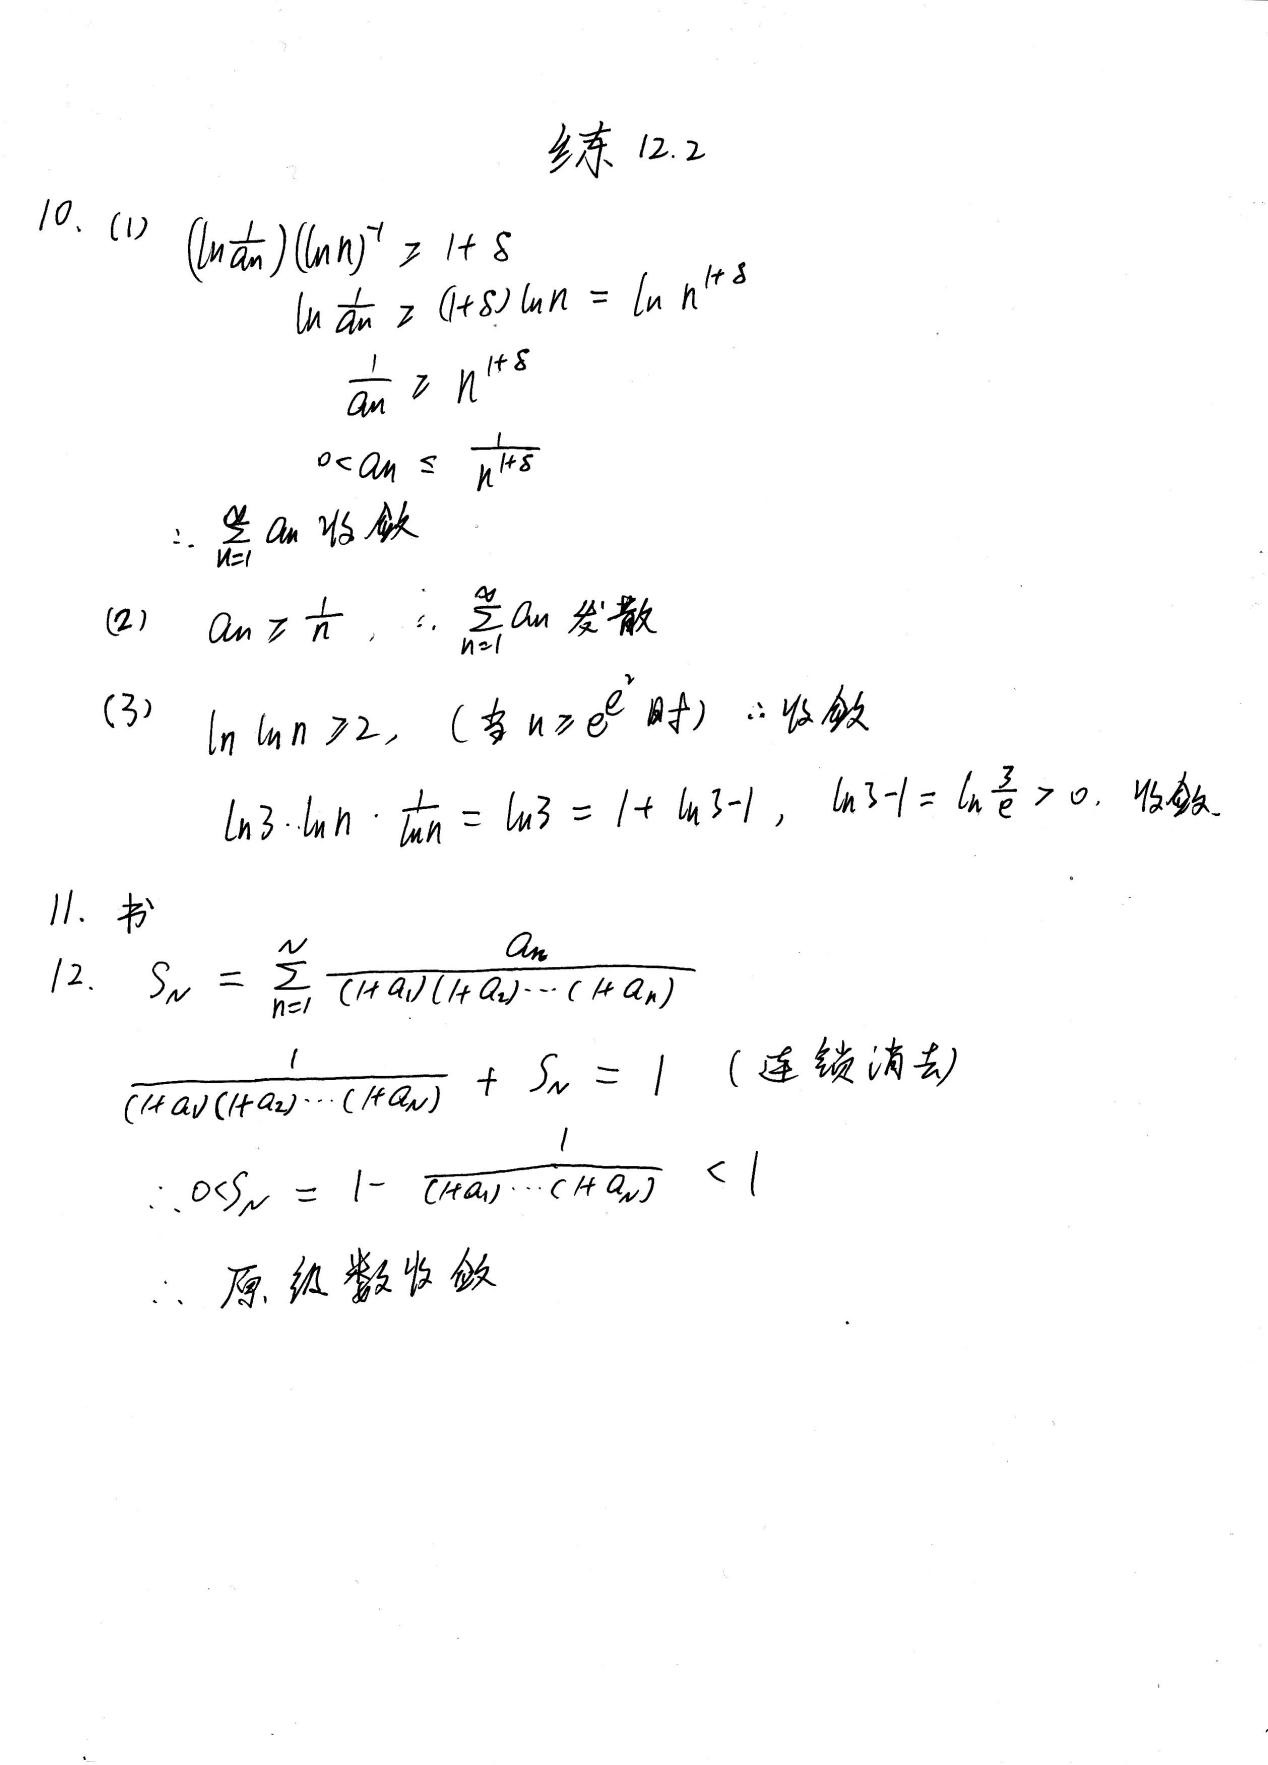 练 12.2
10. (1) (ln 1/an)(ln n)^-1 ≥ 1+δ
ln 1/an ≥ (1+δ) ln n = ln n^(1+δ)
1/an ≥ n^(1+δ)
0 < an ≤ 1/n^(1+δ)
∴ ∑_{n=1}^∞ an 收敛
(2) an ≥ 1/n , ∴ ∑_{n=1}^∞ an 发散
(3) ln ln n ≥ 2, (当 n ≥ e^(e^2) 时) ∴ 收敛
ln3·ln n · 1/ln n = ln3 = 1 + ln3-1, ln3-1 = ln 3/e > 0. 收敛.
11. 书
12. S_N = ∑_{n=1}^N an/((1+a1)(1+a2)···(1+an))
1/((1+a1)(1+a2)···(1+aN)) + S_N = 1 (连锁消去)
∴ 0<S_N = 1- 1/((1+a1)···(1+aN)) < 1
∴ 原级数收敛